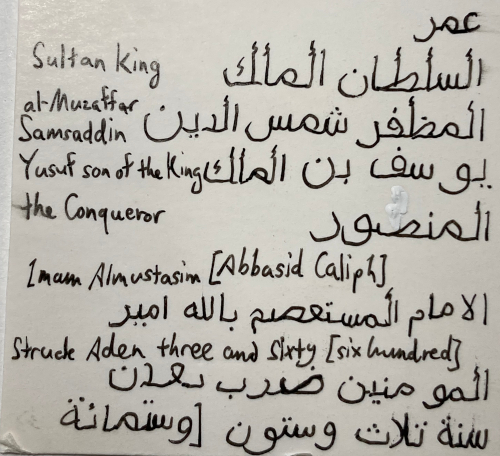 عمر
Sultan King السلطان الملك
al-Muzaffar
Samsaddin المظفر شمس الدين
Yusuf son of the King يوسف بن الملك
the Conqueror المنصور
Imam Almustasim [Abbasid Caliph]
الامام المستعصم بالله امير
Struck Aden three and sixty [six hundred]
المو منين ضرب بعدن
سنة تلاث وستون [وستمائة